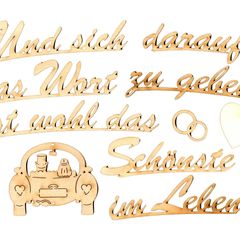 Und sich darauf
as Wort zu geben
st wohl das
Schönste
im Leben